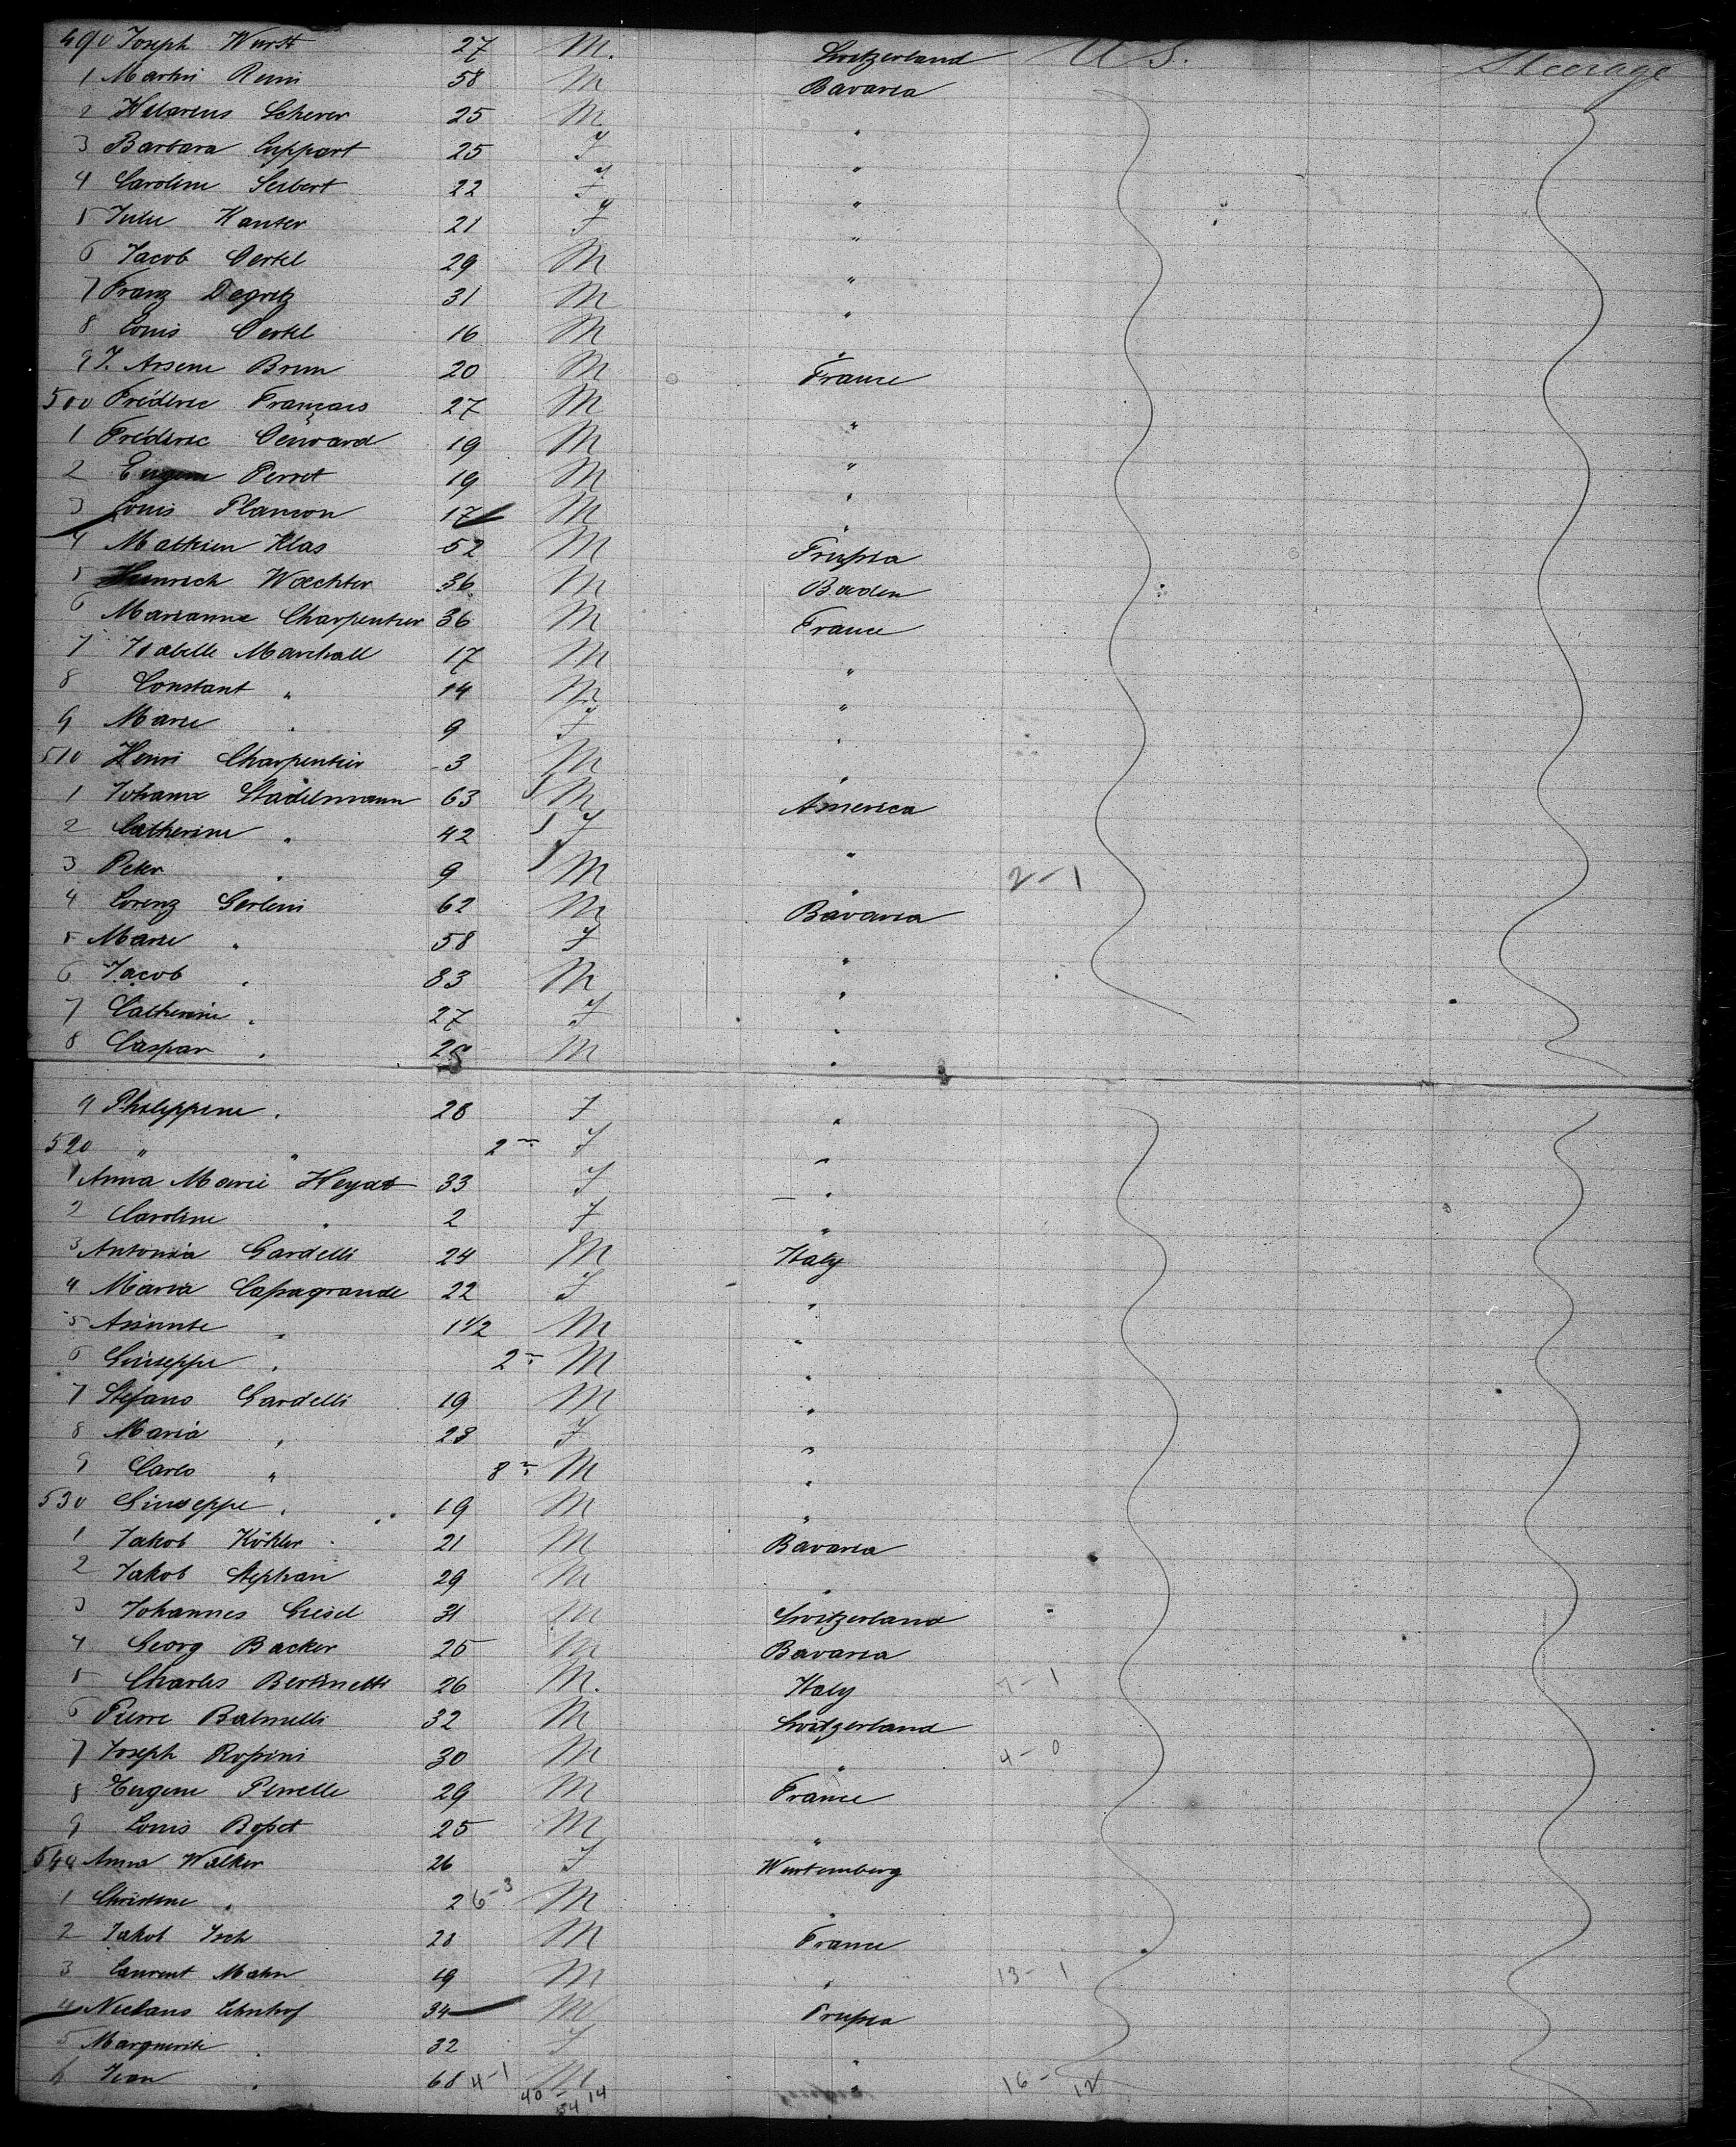 490 Joseph Wurst 27 M. Switzerland U S. Steerage
1 Martin Remi 58 M Bavaria
2 Hilarius Scherer 25 M "
3 Barbara Luppert 25 F "
4 Caroline Seibert 22 F "
5 Julie Kanter 21 F "
6 Jacob Oertel 29 M "
7 Franz Degritz 31 M "
8 Louis Oertel 16 M "
9 J. Arsene Brun 20 M France
500 Fréderic Français 27 M "
1 Fréderic 19 M "
2 Eugene Perret 19 M "
3 Louis Plancon 17 M "
4 Mathieu Klas 52 M Prussia
5 Heinrich Waechter 36 M Baden
6 Marianne Charpentier 36 M France
7 Isabelle Marchall 17 M "
8 Constant " 14 M "
9 Marie " 9 F "
510 Henri Charpentier 3 M "
1 Johann Stadelmann 63 M America
2 Catherine " 42 F "
3 Peter " 9 M " 2-1
4 Lorenz Gerlein 62 M Bavaria
5 Marie " 58 F "
6 Jacob " 33 M "
7 Catherine " 27 F "
8 Caspar " 28 M "
9 Philippine " 28 F "
520 " " 2 m F "
1 Anna Marie 33 F "
2 Caroline " 2 F "
3 Antonia Gardelli 24 M Italy
4 Maria Casagrande 22 F "
5 Assunte " 1 1/2 M "
6 Giuseppe " 2 m M "
7 Stefano Gardelli 19 M "
8 Maria " 23 F "
9 Carlo " 8 m M "
530 Giuseppe " 19 M "
1 Jakob Köhler 21 M Bavaria
2 Jakob Stephan 29 M "
3 Johannes Giesel 31 M Switzerland
4 Georg Backer 25 M Bavaria
5 Charles Bertinetti 26 M. Italy 7-1
6 Pierre Balmelli 32 M Switzerland
7 Joseph Rossini 30 M " 4-0
8 Eugene Perrelle 29 M France
9 Louis Bosset 25 M "
540 Anna Walker 26 F Wurtemberg
1 Christine " 2 6-3 M "
2 Jakob Isch 28 M France
3 Laurent Mahn 19 M " 13-1
4 Niclaus Lehnhof 34 M Prussia
5 Marguerite " 32 F "
6 Jean " 68 4-1 M " 16- 12
40-14
54